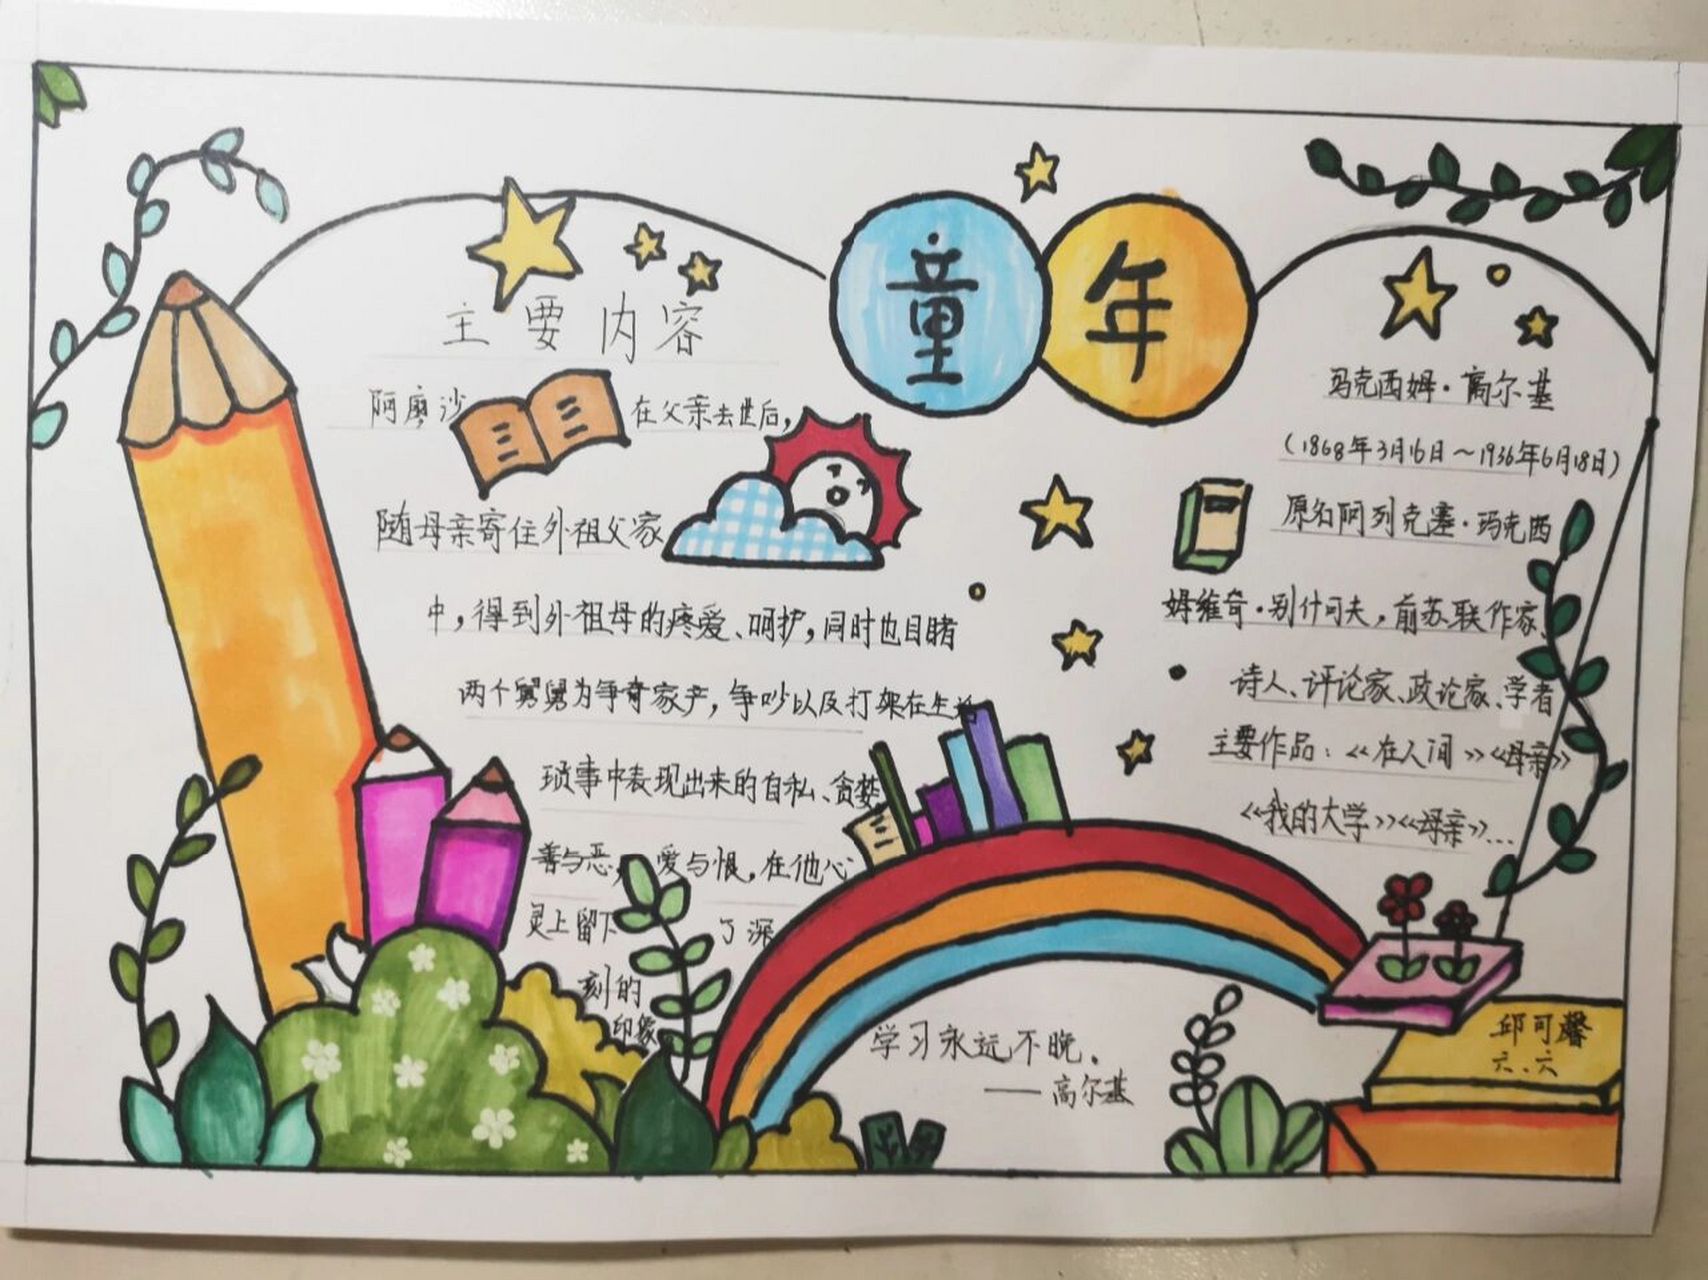 童年
主要内容
阿廖沙在父亲去世后，
随母亲寄住外祖父家
中，得到外祖母的疼爱、呵护，同时也目睹
两个舅舅为争夺家产，争吵以及打架在生活
琐事中表现出来的自私、贪婪
善与恶，爱与恨，在他心
灵上留下了深
刻的
印象
玛克西姆·高尔基
（1868年3月16日～1936年6月18日）
原名阿列克塞·玛克西
姆维奇·别什可夫，前苏联作家、
诗人、评论家、政论家、学者
主要作品：《在人间》《母亲》
《我的大学》《母亲》...
学习永远不晚.
——高尔基
邱可馨
六、六